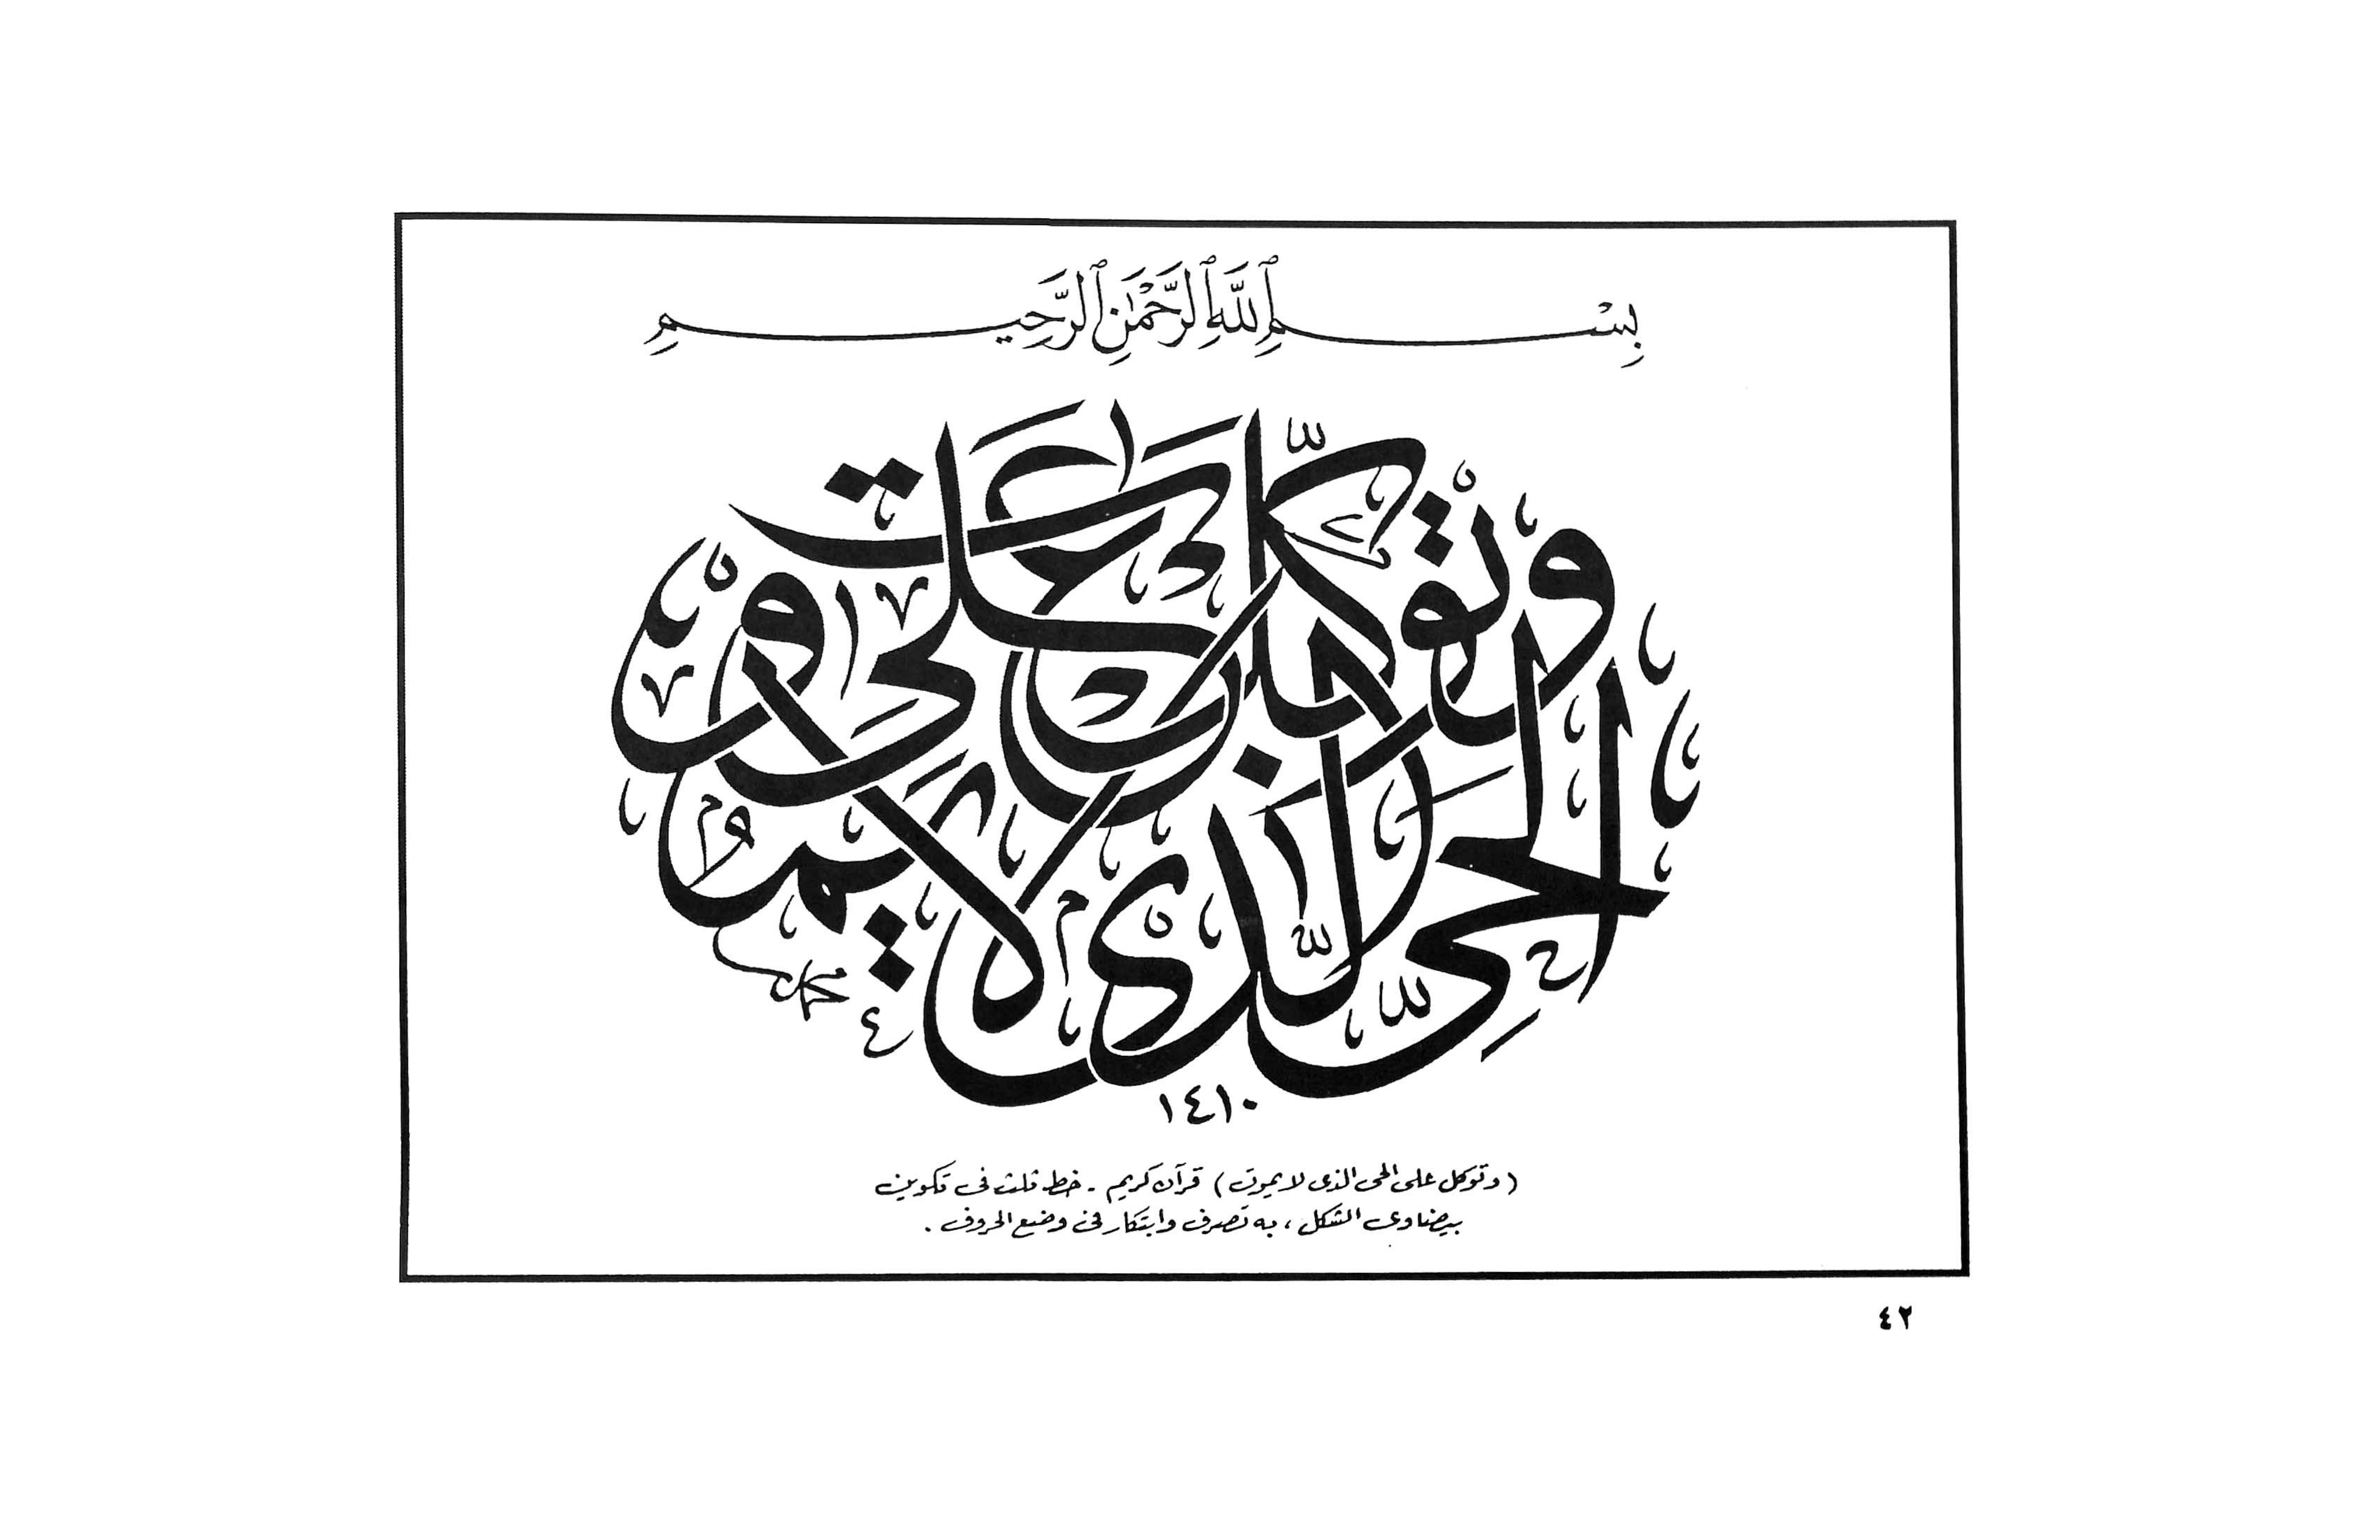 بِسْمِ ٱللَّهِ ٱلرَّحْمَٰنِ ٱلرَّحِيمِ
وتوكل على الحى الذى لا يموت
محمد
١٤١٠
(وتوكل على الحى الذى لا يموت) قرآن كريم - خط ثلث فى تكوين
بيضاوى الشكل، به تصرف وابتكار فى وضع الحروف.
٤٢